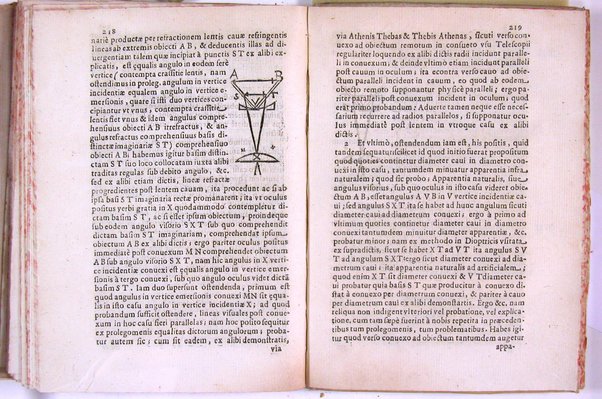 218
nariè productæ per refractionem lentis cauæ refringentis
lineas ab extremis obiecti AB, & deducentis illas ad di-
uergentiam talem quæ incipiat à punctis ST ex alibi ex-
plicatis, est equalis angulo in eodem ferè
vertice (contempta crassitie lentis, nam
ostendimus in proleg. angulum in vertice
incidentiæ equalem angulo in vertice e-
mersionis, quare si isti duo vertices con-
cipiantur vt vnus, contempta crassitie
lentis fiet vnus & idem angulus compre-
hensiuus obiecti AB irrefractus, &
angulus refractus comprehensiuus basis di-
stinctæ imaginariæ ST) comprehensiuo
obiecti AB habemus igitur basim distin-
ctam ST suo loco collocatam iuxta alibi
traditas regulas sub debito angulo, &c.
sed ex alibi etiam dictis, lineæ refractæ
progredientes post lentem cauam, ita procedunt ac si ab
ipsa basi ST imaginaria rectè promanarent; ita vt oculus
positus verbi gratia in X quodammodo contempletur di-
ctam basim ST, ac si esset ipsum obiectum, proindeque
sub eodem angulo visorio SXT sub quo comprehendit
dictam basim ST imaginariam, comprehendat ipsum
obiectum AB ex alibi dictis; ergo pariter oculus positus
immediatè post conuexum MN comprehendet obiectum
AB sub angulo visorio SXT, nam hic angulus in X verti-
ce incidentiæ conuexi est æqualis angulo in vertice emer-
sionis à tergo conuexi, sub quo angulo oculus videt dictã
basim ST. Iam duo supersunt ostendenda, primum est
quod angulus in vertice emersionis conuexi MN sit equa-
lis in isto casu angulo in vertice incidentiæ X; ad quod
probandum sufficit ostendere, lineas visuales post conue-
xum in hoc casu fieri parallelas; nam hoc posito sequitur
ex prolegomenis equalitas dictorum angulorum; proba-
tur autem sic; cum sit eadem, ex alibi demonstratis,
via
A B
S T
V
M N
219
via Athenis Thebas & Thebis Athenas, sicuti verso con-
uexo ad obiectum remotum in consueto vsu Telescopij
regulariter loquendo ex alibi dictis radij incidunt paralle-
li in conuexum; & deinde vltimo etiam incidunt paralleli
post cauum in oculum; ita econtra verso cauo ad obiectum
paralleli incident in cauum, eo quod ab eodem
obiecto remoto supponantur physicè paralleli; ergo pa-
riter paralleli post conuexum incident in oculum, quod
erat primo probandum: Aduerte tamen neque esse neces-
sarium recurrere ad radios parallelos, si supponatur ocu-
lus immediatè post lentem in vtroque casu ex alibi
dictis.
2 Et vltimò, ostendendum iam est, his positis, quid
tandem sequatur: scilicet id quod initio fuerat propositum
quod quoties continetur diameter caui in diametro con-
uexi in isto casu, tantundem minuatur apparentia infra
naturalem; quod sic probo; Apparentia naturalis, siue
angulus visorius, sub quo oculus in isto casu videret obie-
ctum AB, esset angulus AVB in V vertice incidentiæ ca-
ui; sed angulus SXT ita se habet ad hunc angulum sicuti
diameter caui ad diametrum conuexi; ergo à primo ad
vltimum quoties continetur diameter caui in diametro
conuexi tantundem minuitur apparentia, &c.
probatur minor; nam ex methodo in Dioptricis vsurpata
ex supradictis, sicut se habet XT ad VT ita angulus SV
T ad angulum SXT ergo sicut diameter conuexi ad dia-
metrum caui; ita apparentia naturalis ad artificialem;
quod enim XT sit diameter conuexi & VT diameter ca-
ui probatur quia basis ST quæ producitur à conuexo di-
stat à conuexo per diametrum conuexi, & pariter à cauo
per diametrum caui ex alibi demonstratis. Ergo &c. nam
reliqua non indigent vlteriori vel probatione, vel explica-
tione, cum tam sæpè fuerint à nobis repetita in præceden-
tibus tum prolegomenis, tum problematibus. Habes igi-
tur quod verso conuexo ad obiectum tantundem augetur
appa-